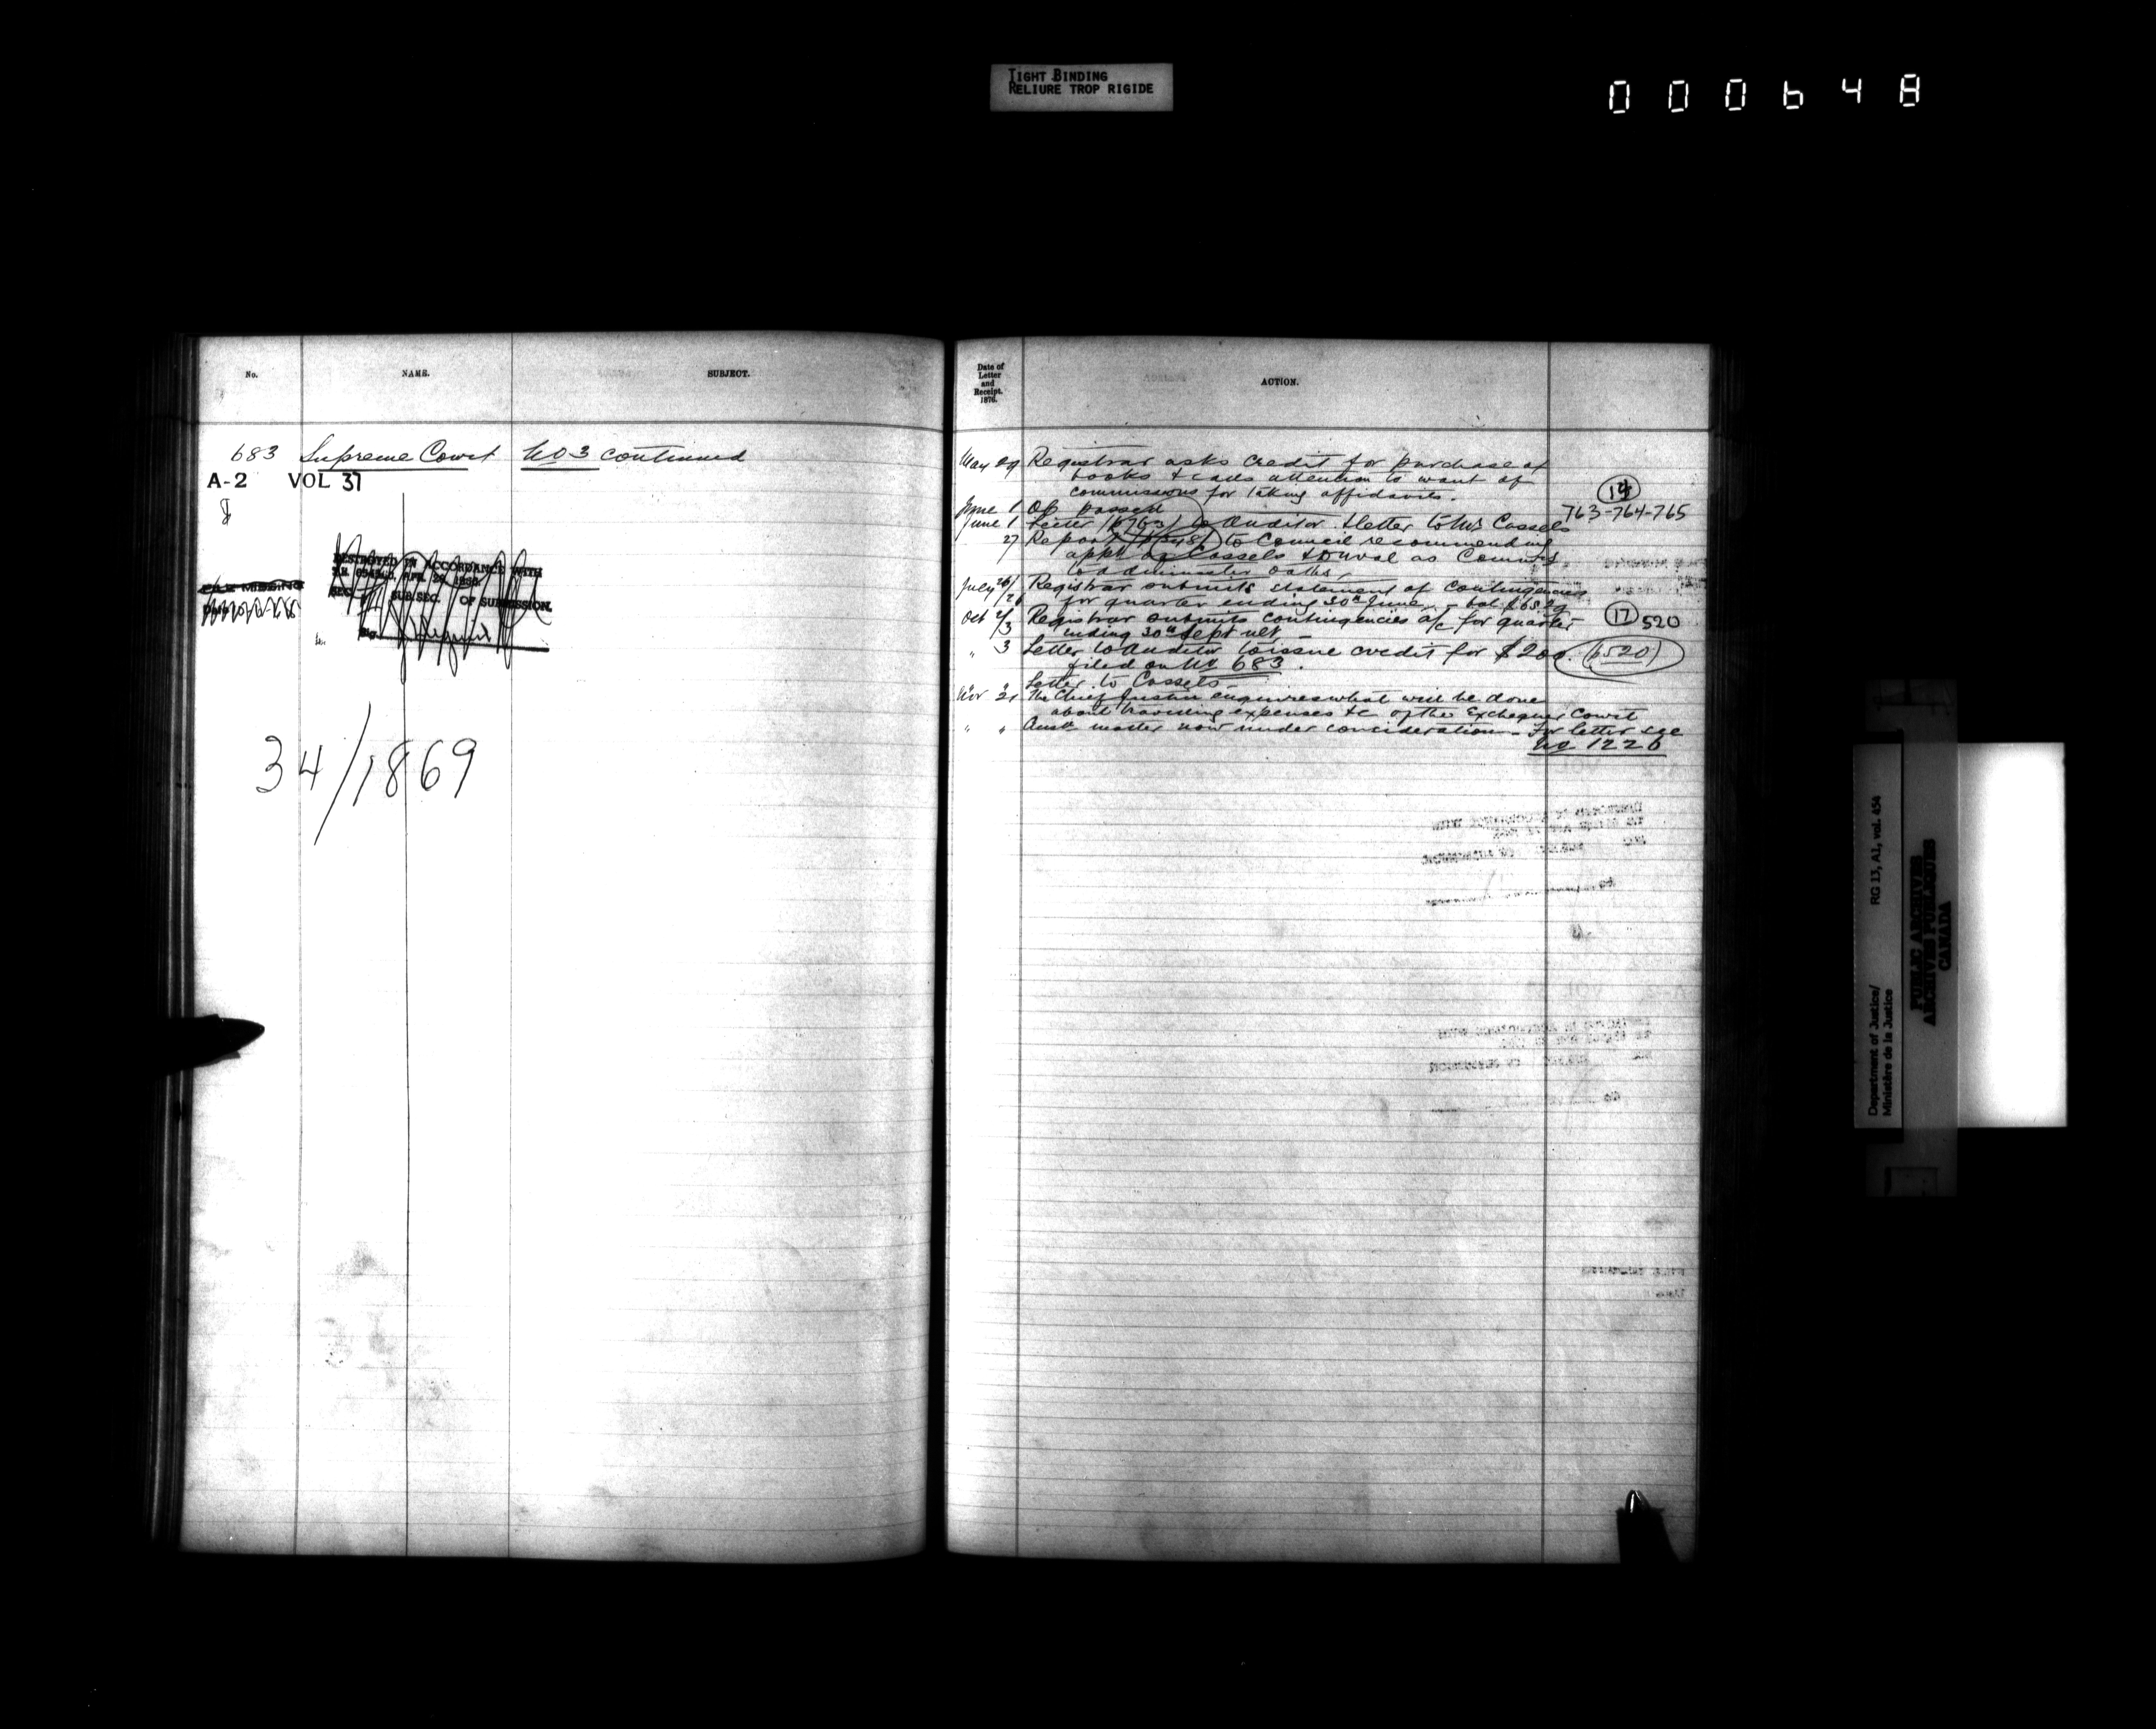 TIGHT BINDING
RELIURE TROP RIGIDE
000648
No. NAME. SUBJECT.
683 Supreme Court No 3 continued
A-2 VOL 37
8
DESTROYED IN ACCORDANCE WITH
SEC. SUB.SEC. OF SUBMISSION.
Sig.
FILE MISSING
34/1869
Date of
Letter
and
Receipt.
1876.
ACTION.
May 29 Registrar asks credit for purchase of
books & calls attention to want of
commissions for taking affidavits.
14
June 1 passed
763-764-765
June 1 Letter (p 763) to Auditor & letter to Mr Cassels
27 Report to Council recommending
appt of Cassels & Duval as Commrs
to administer oaths
July 26/26 Registrar submits statement of Contingencies
for quarter ending 30th June - bal $65.29
Oct 2/3 Registrar submits contingencies a/c for quarter
17 520
ending 30th Sept ult -
" 3 Letter to Auditor to issue credit for $200. (p520)
filed on No 683.
" " Letter to Cassels -
Nov 21 The Chief Justice enquires what will be done
about travelling expenses &c of the Exchequer Court
" " Ansd. matter now under consideration - For letter see
No 1226
Department of Justice/
Ministère de la Justice
RG 13, A1, vol. 454
PUBLIC ARCHIVES
ARCHIVES PUBLIQUES
CANADA